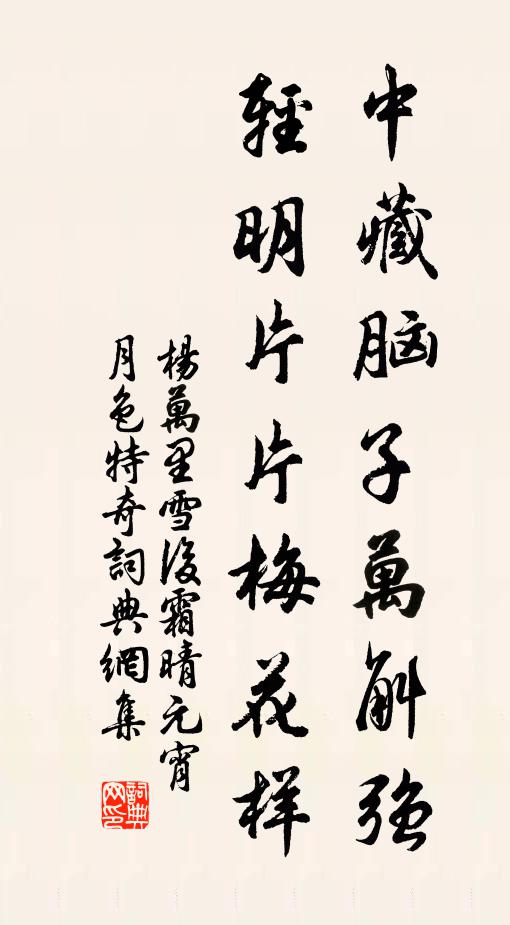 中藏脑子萬斛強
輕明片片梅花样
楊萬里雪後霜晴元宵
月色特奇詞典網集
詞典
网印